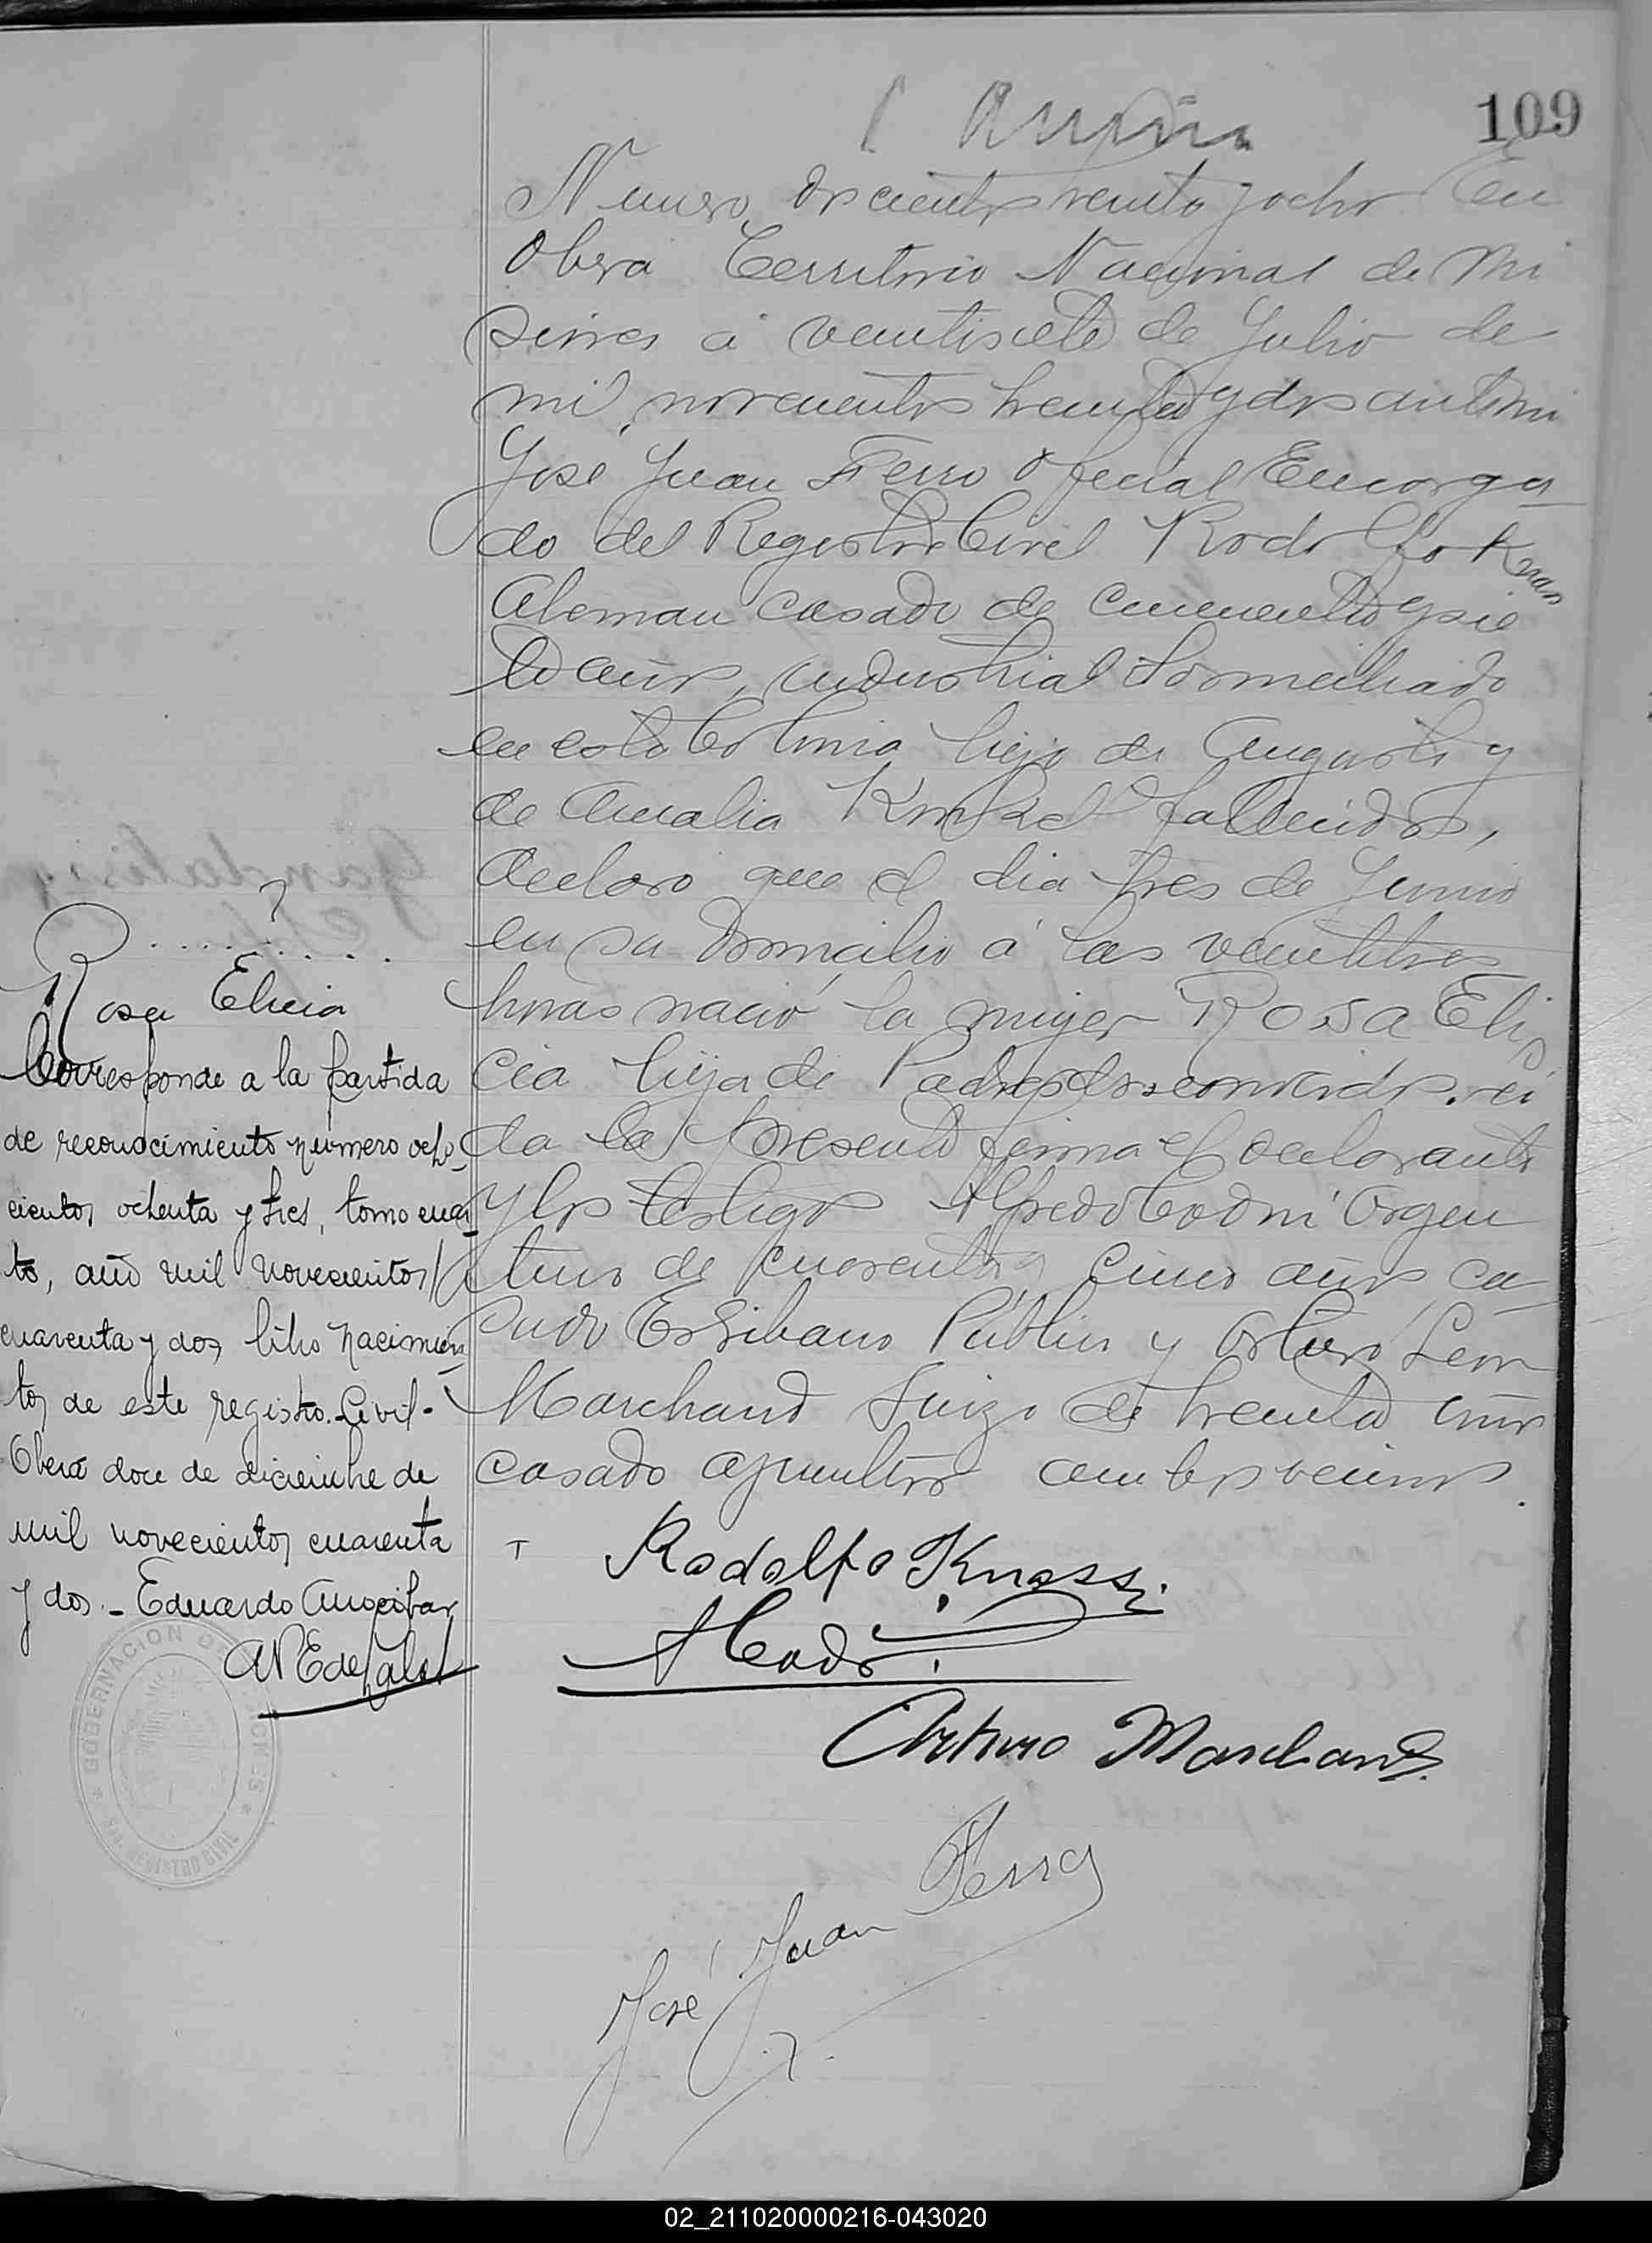 109
Numero doscientos veinte y ocho En
Oberá Territorio Nacional de Mi
siones á veintisiete de Julio de
mil novecientos treinta y dos ante mi
José Juan Ferro Oficial Encarga
do del Registro Civil Rodolfo Knass
Aleman casado de cincuenta y sie
te años, industrial domiciliado
en esta Colonia hijo de Augusto y
de Amalia fallecidos,
declaro que el dia tres de Junio
en su domicilio á las veintitres
horas nació la mujer Rosa Eli
cia hija de Padres desconocidos. Lei
da la presente firma el declarante
y los testigos Alfredo Codni Argen
tino de cuarenta y cinco años ca
sado Escribano Público y Arturo León
Marchand Suizo de treinta años
casado agricultor ambos vecinos.
Rodolfo Knass.
ACodni
Arturo Marchand.
José Juan Ferro
?
R..........
Rosa Elicia
Corresponde a la partida
de reconocimiento número ocho-
cientos ochenta y tres, tomo cuar-
to, año mil novecientos
cuarenta y dos, libro nacimien-
tos de este registro Civil.-
Oberá doce de diciembre de
mil novecientos cuarenta
y dos.- Eduardo
GOBERNACION DE MISIONES
REGISTRO CIVIL
02_211020000216-043020